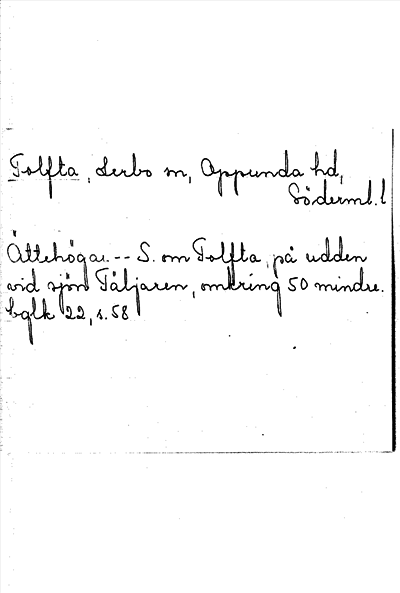 Tolfta, Lerbo sn, Oppunda hd,
Söderml. l
Ättehögar. -- S. om Tolfta, på udden
vid sjön Tåljaren, omkring 50 mindre.
bglk 22, s. 58